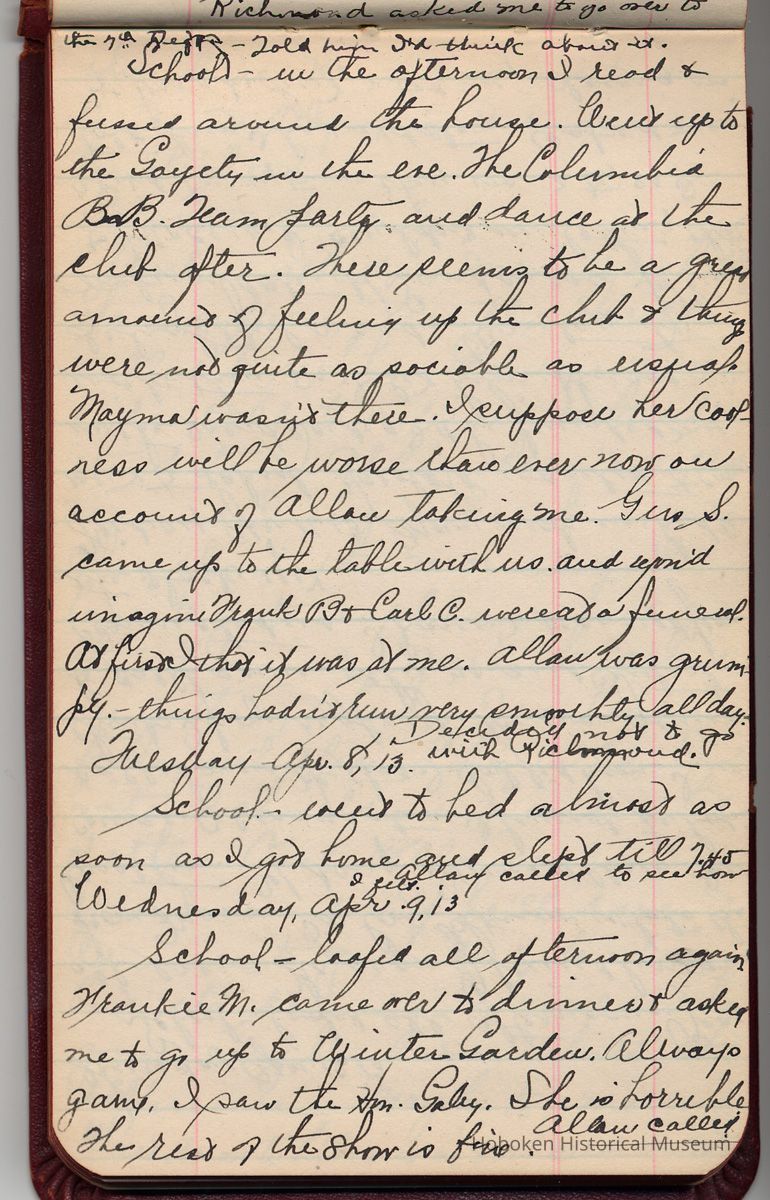 Richmond asked me to go over to
the 7th Regt. - Told him I'd think about it.
School - in the afternoon I read &
fussed around the house. Went up to
the Gayety in the eve. The Columbia
B.B. Team party and dance at the
club after. There seems to be a great
amount of feeling up the club & things
were not quite as sociable as usual.
Mayma wasn't there. I suppose her cool-
ness will be worse than ever now on
account of Allan taking me. Gus S.
came up to the table with us. and you'd
imagine Frank B & Carl C. were at a funeral.
At first I tho't it was at me. Allan was grum-
py. - things hadn't run very smoothly all day.
Decided not to go
Tuesday Apr. 8, 13. with Richmond.
School - went to bed almost as
soon as I got home and slept till 7.45
Allan called to see how
I felt.
Wednesday, Apr. 9, 13
School - loafed all afternoon again
Frankie M. came over to dinner & asked
me to go up to Winter Garden. Always
game. I saw the Hon. Gaby. She is horrible
Allan called
The rest of the show is fine.
Hoboken Historical Museum